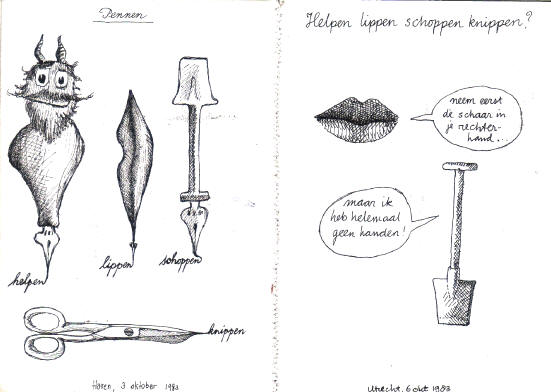 Pennen
helpen
lippen
schoppen
knippen
Haren, 3 oktober 1983
Helpen lippen schoppen knippen?
neem eerst
de schaar in
je rechter-
hand...
maar ik
heb helemaal
geen handen!
Utrecht, 6 okt 1983